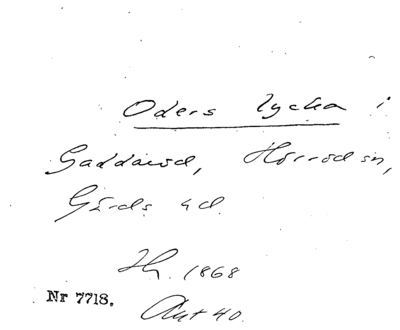 Oders lycka i
Gaddaröd, Hörröd sn,
Gärds hd.
Th. 1868
Nr 7718.
Akt 40